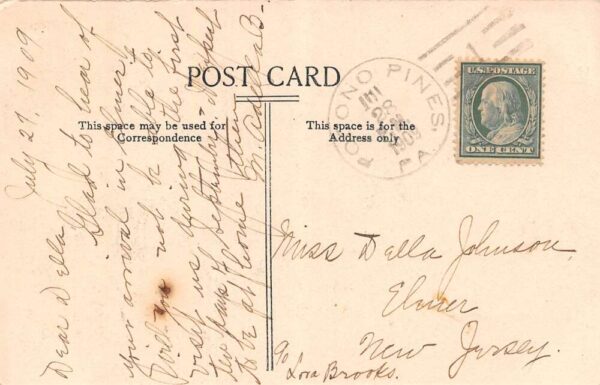 POST CARD
This space may be used for
Correspondence
This space is for the
Address only
POCONO PINES,
PA
JUL
28
1909
U.S. POSTAGE
ONE CENT
July 27, 1909.
Dear Della
Glad to hear of
your arrival in Elmer
Will you not be able to
visit us during the first
two days of September. Expect
to be at home then
Miss Della Johnson,
Elmer
New Jersey.
c/o
Lora Brooks.